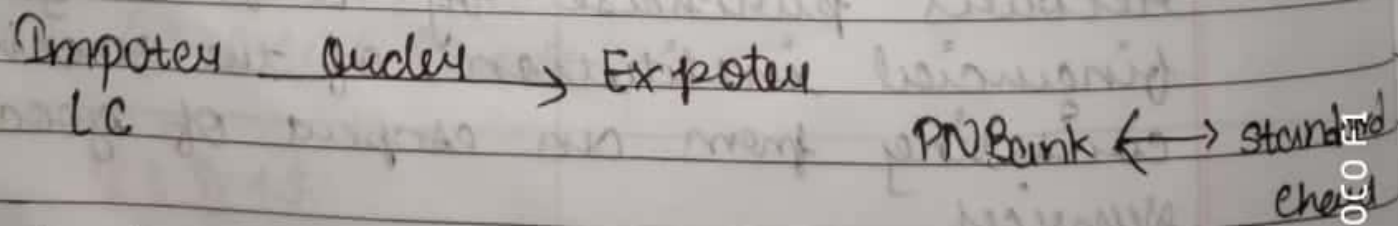 Impoter order → Expoter
LC PN Bank ↔ standard